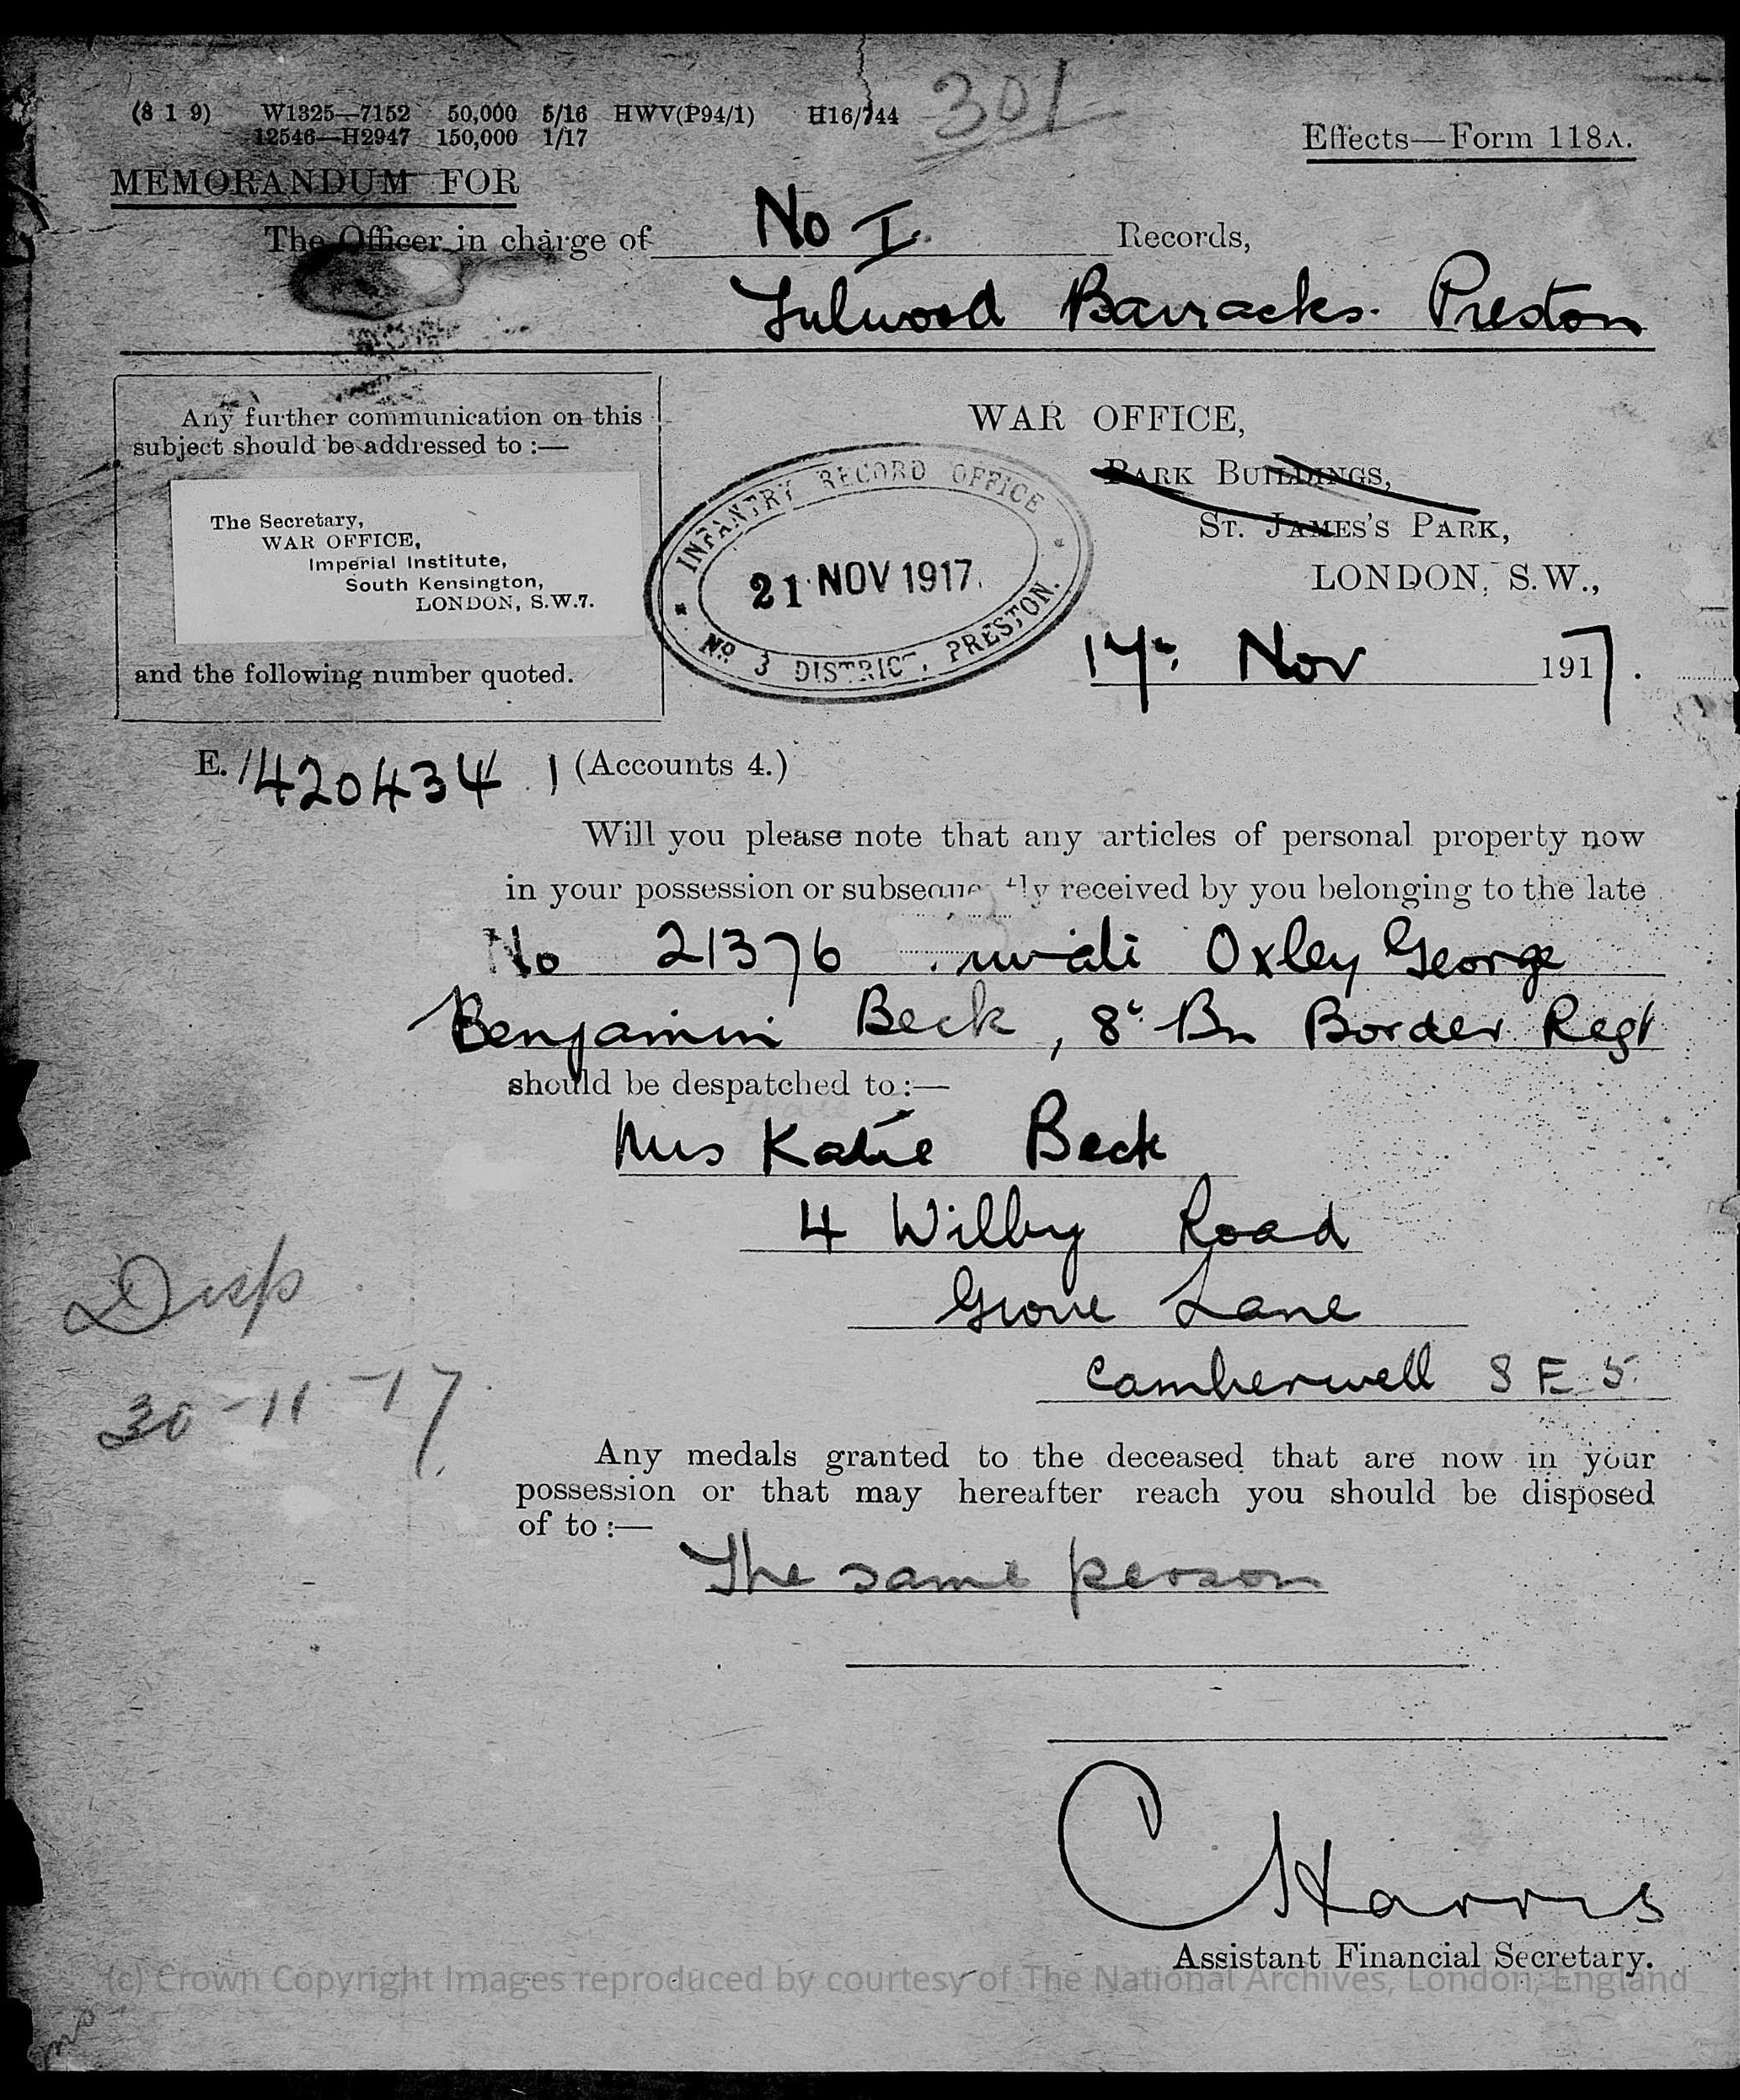 (8 1 9) W1325—7152 50,000 5/16 HWV(P94/1) H16/744
12546—H2947 150,000 1/17
301
Effects—Form 118A.
MEMORANDUM FOR
The Officer in charge of No I. Records,
Fulwood Barracks. Preston
Any further communication on this
subject should be addressed to :—
The Secretary,
WAR OFFICE,
Imperial Institute,
South Kensington,
LONDON, S.W.7.
and the following number quoted.
WAR OFFICE,
PARK BUILDINGS,
ST. JAMES'S PARK,
LONDON, S.W.,
INFANTRY RECORD OFFICE
21 NOV 1917.
No 3 DISTRICT, PRESTON.
Nov 1917.
E. /420434 1 (Accounts 4.)
Will you please note that any articles of personal property now
in your possession or subsequently received by you belonging to the late
No 21376 Oxley George
Benjamin Beck, 8th Bn Border Regt
should be despatched to :—
Mrs Katie Beck
4 Wilby Road
Grove Lane
Camberwell S E 5.
Disp
30-11-17.
Any medals granted to the deceased that are now in your
possession or that may hereafter reach you should be disposed
of to :—
The same person
C Harris
Assistant Financial Secretary.
(c) Crown Copyright Images reproduced by courtesy of The National Archives, London, England